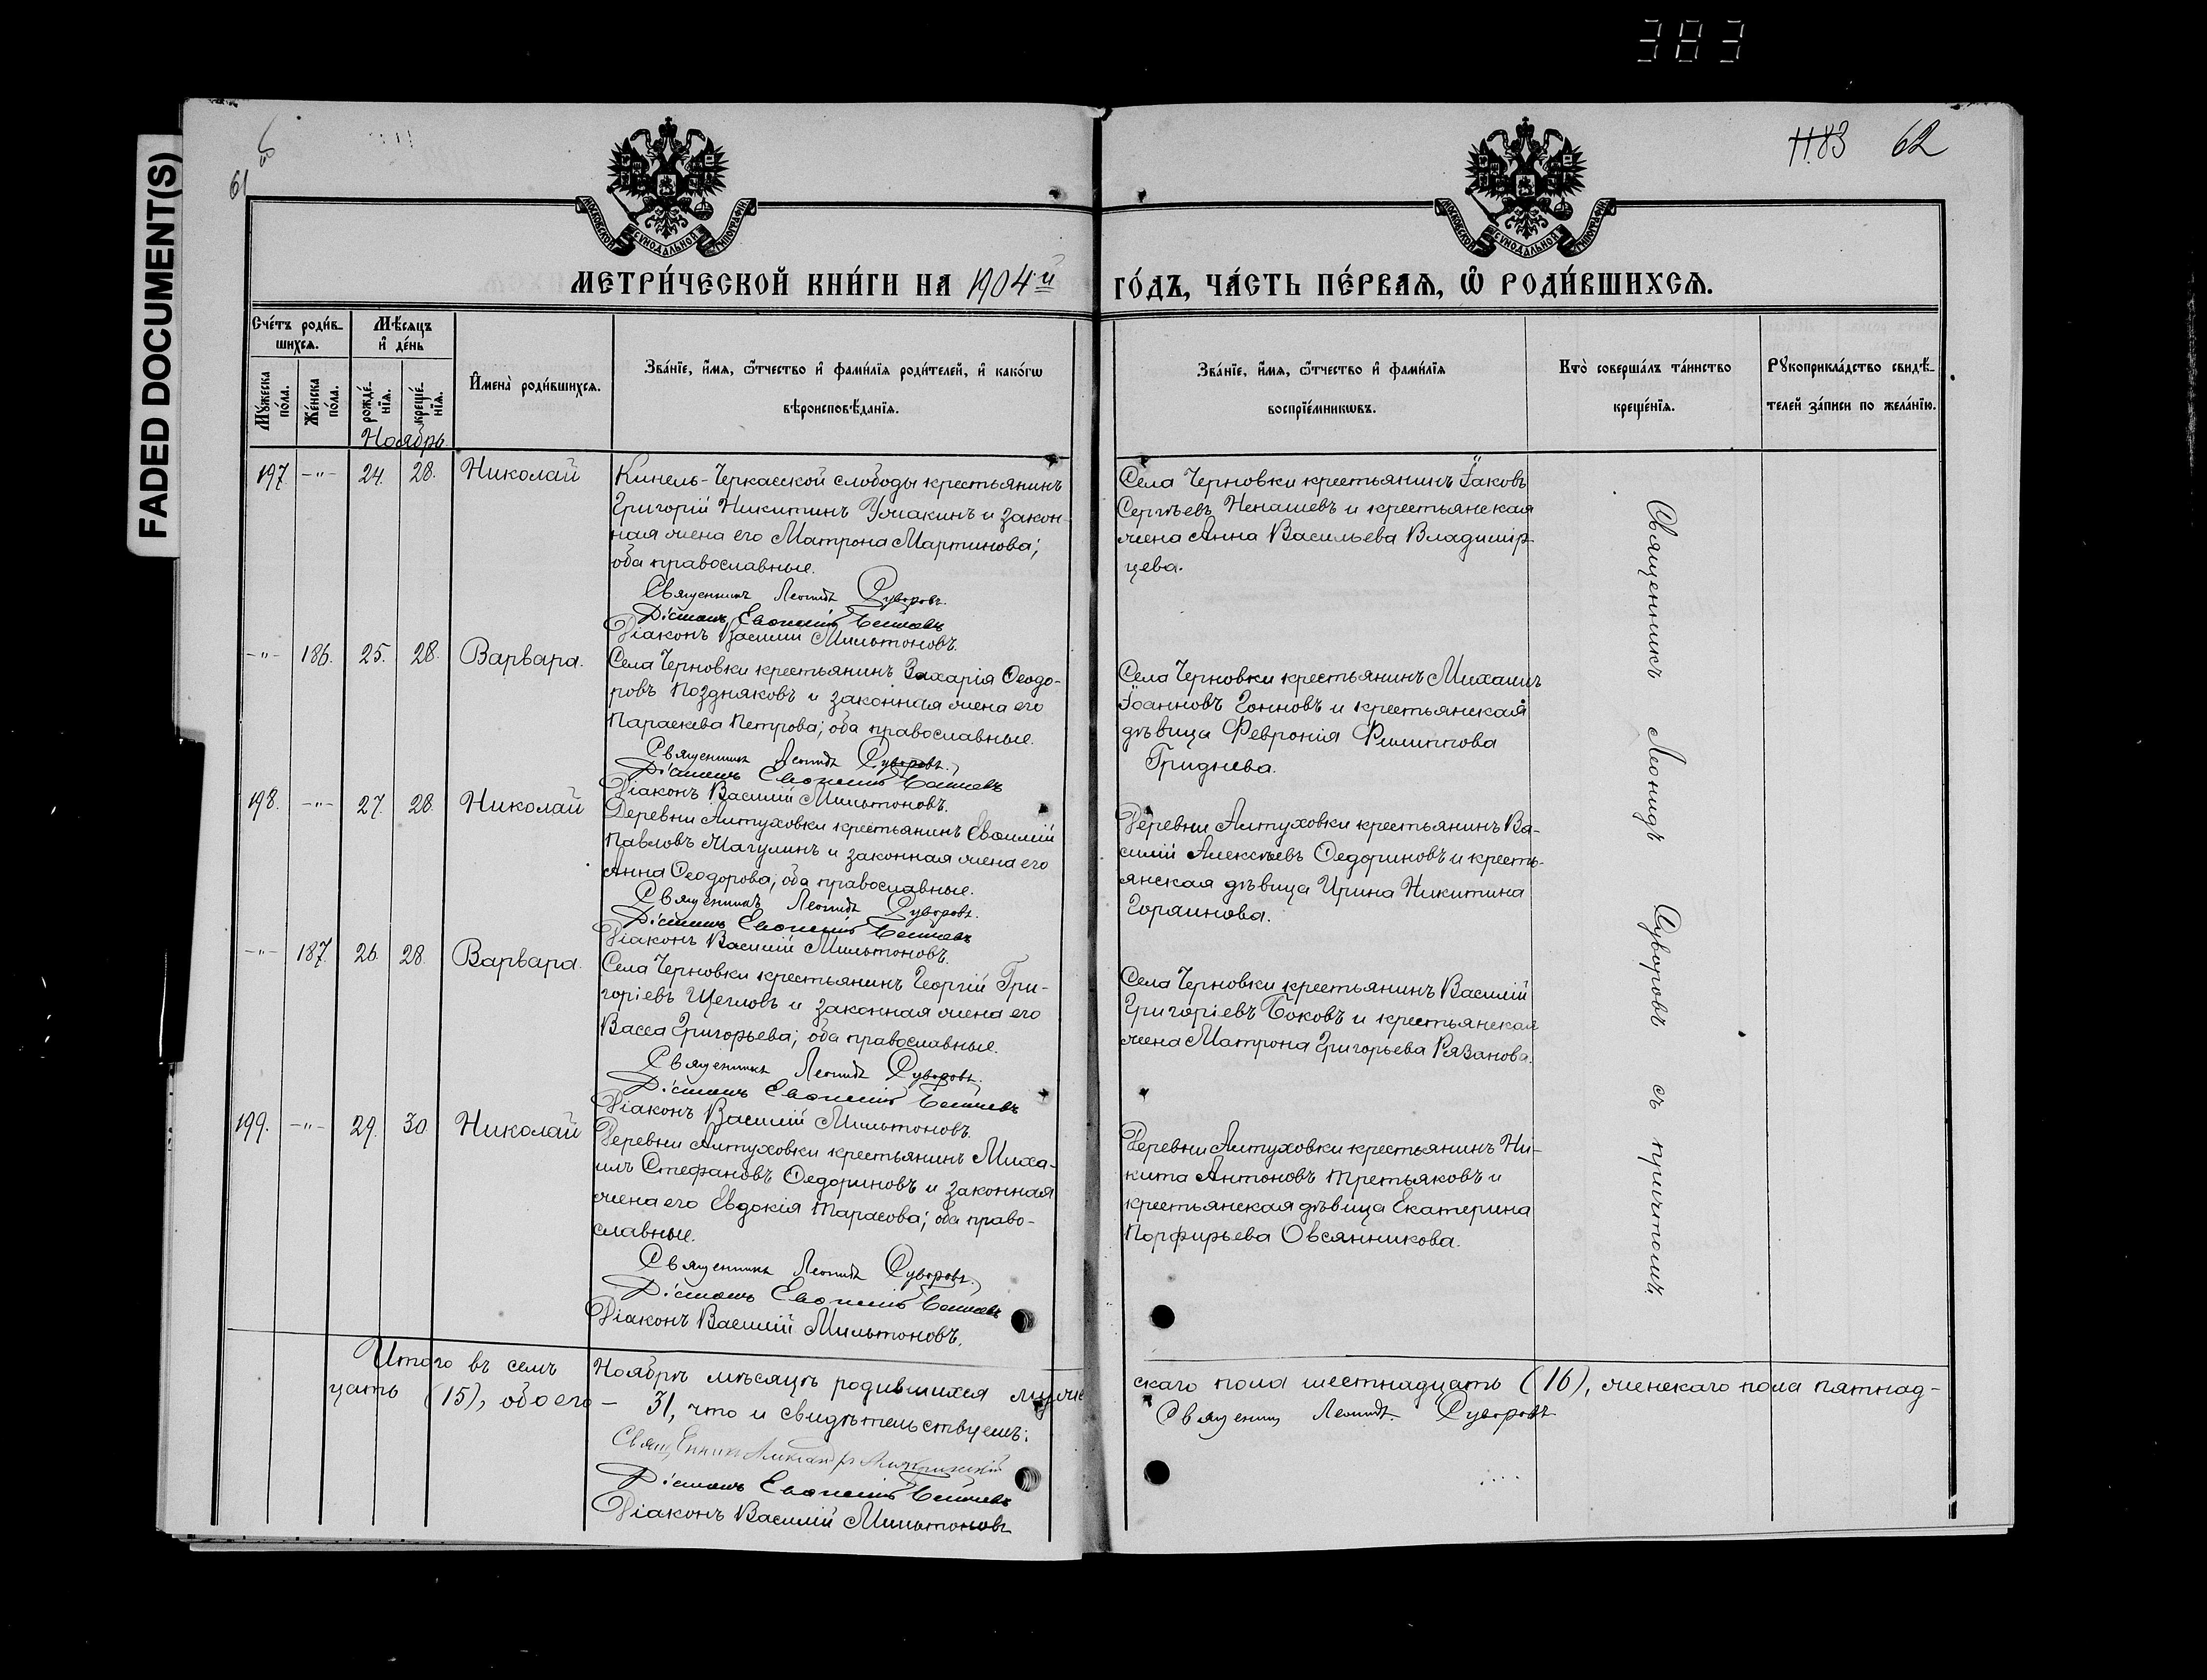 383
FADED DOCUMENT(S)
61
1183 62
МОСКОВСКОЙ СѴНОДАЛЬНОЙ ТИПОГРАФІИ
МОСКОВСКОЙ СѴНОДАЛЬНОЙ ТИПОГРАФІИ
МЕТРИ́ЧЕСКОЙ КНИ́ГИ НА 1904й ГО́ДЪ, ЧА́СТЬ ПЕ́РВАѦ, Ѡ҆ РОДИ́ВШИХСѦ.
Сче́тъ роди́в-
шихсѧ.
Мѣ́сѧцъ
и҆ де́нь
Мꙋ́жеска
по́ла.
Же́нска
по́ла.
рожде́-
нїѧ.
креще́-
нїѧ.
И҆мена̀ роди́вшихсѧ.
Зва́нїе, и҆́мѧ, ѻ҆́тчество и҆ фами́лїѧ роди́телей, и҆ како́гѡ
вѣроисповѣ́данїѧ.
Зва́нїе, и҆́мѧ, ѻ҆́тчество и҆ фами́лїѧ
воспрїе́мникѡвъ.
Кто̀ соверша́лъ та́инство
креще́нїѧ.
Рꙋкоприкла́дство свидѣ́-
телей за́писи по жела́нїю.
Ноябрь
197. -"- 24. 28. Николай
Кинель-Черкасской слободы крестьянинъ
Григорій Никитинъ Учакинъ и закон-
ная жена его Матрона Мартинова;
оба православные.
Священникъ Леонидъ Суворовъ.
Діаконъ Василій Мильтоновъ.
Села Черновки крестьянинъ Іаковъ
Сергѣевъ Ненашевъ и крестьянская
жена Анна Васильева Владимір-
цева.
-"- 186. 25. 28. Варвара.
Села Черновки крестьянинъ Захарія Ѳеодо-
ровъ Поздняковъ и законная жена его
Параскева Петрова; оба православные.
Священникъ Леонидъ Суворовъ.
Діаконъ Василій Мильтоновъ.
Села Черновки крестьянинъ Михаилъ
Іоанновъ Гонновъ и крестьянская
дѣвица Февронія Филиппова
Гриднева.
198. -"- 27. 28. Николай
Деревни Алтуховки крестьянинъ Евѳимій
Павловъ Магулинъ и законная жена его
Анна Ѳеодорова; оба православные.
Священникъ Леонидъ Суворовъ.
Діаконъ Василій Мильтоновъ.
Деревни Алтуховки крестьянинъ Ва-
силій Алексѣевъ Ѳедориновъ и кресть-
янская дѣвица Ирина Никитина
Горяинова.
-"- 187. 26. 28. Варвара.
Села Черновки крестьянинъ Георгій Гри-
горіевъ Щегловъ и законная жена его
Васса Григорьева; оба православные.
Священникъ Леонидъ Суворовъ.
Діаконъ Василій Мильтоновъ.
Села Черновки крестьянинъ Василій
Григоріевъ Боковъ и крестьянская
жена Матрона Григорьева Рязанова.
199. -"- 29. 30. Николай
Деревни Алтуховки крестьянинъ Миха-
илъ Стефановъ Ѳедориновъ и законная
жена его Евдокія Тарасова; оба право-
славные.
Священникъ Леонидъ Суворовъ.
Діаконъ Василій Мильтоновъ.
Деревни Алтуховки крестьянинъ Ни-
кита Антоновъ Третьяковъ и
крестьянская дѣвица Екатерина
Порфирьева Овсянникова.
Священникъ Леонидъ Суворовъ съ причтомъ.
Итого въ семъ Ноябрѣ мѣсяцѣ родившихся муже скаго пола шестнадцать (16), женскаго пола пятнад-
цать (15), обоего - 31, что и свидѣтельствуемъ:
Священникъ Леонидъ Суворовъ
Діаконъ Василій Мильтоновъ